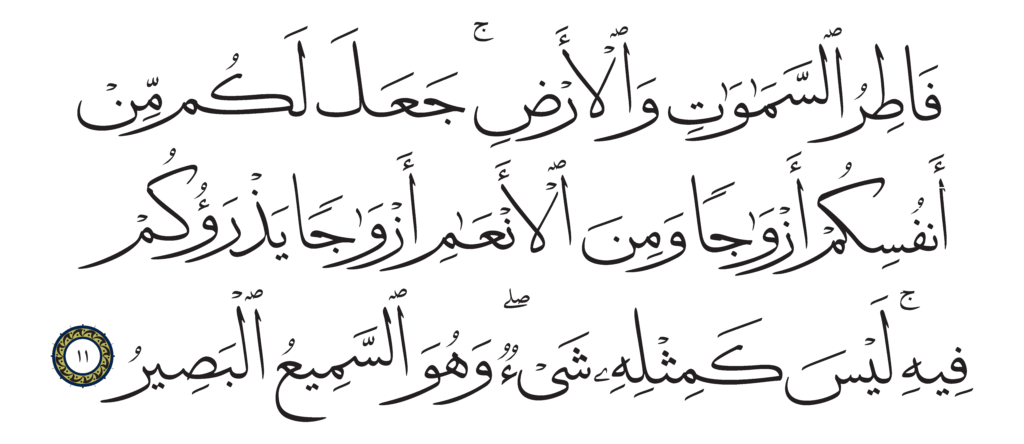 فَاطِرُ ٱلسَّمَٰوَٰتِ وَٱلْأَرْضِ ۚ جَعَلَ لَكُم مِّنْ
أَنفُسِكُمْ أَزْوَٰجًا وَمِنَ ٱلْأَنْعَٰمِ أَزْوَٰجًا يَذْرَؤُكُمْ
فِيهِ ۚ لَيْسَ كَمِثْلِهِۦ شَىْءٌ ۖ وَهُوَ ٱلسَّمِيعُ ٱلْبَصِيرُ ١١